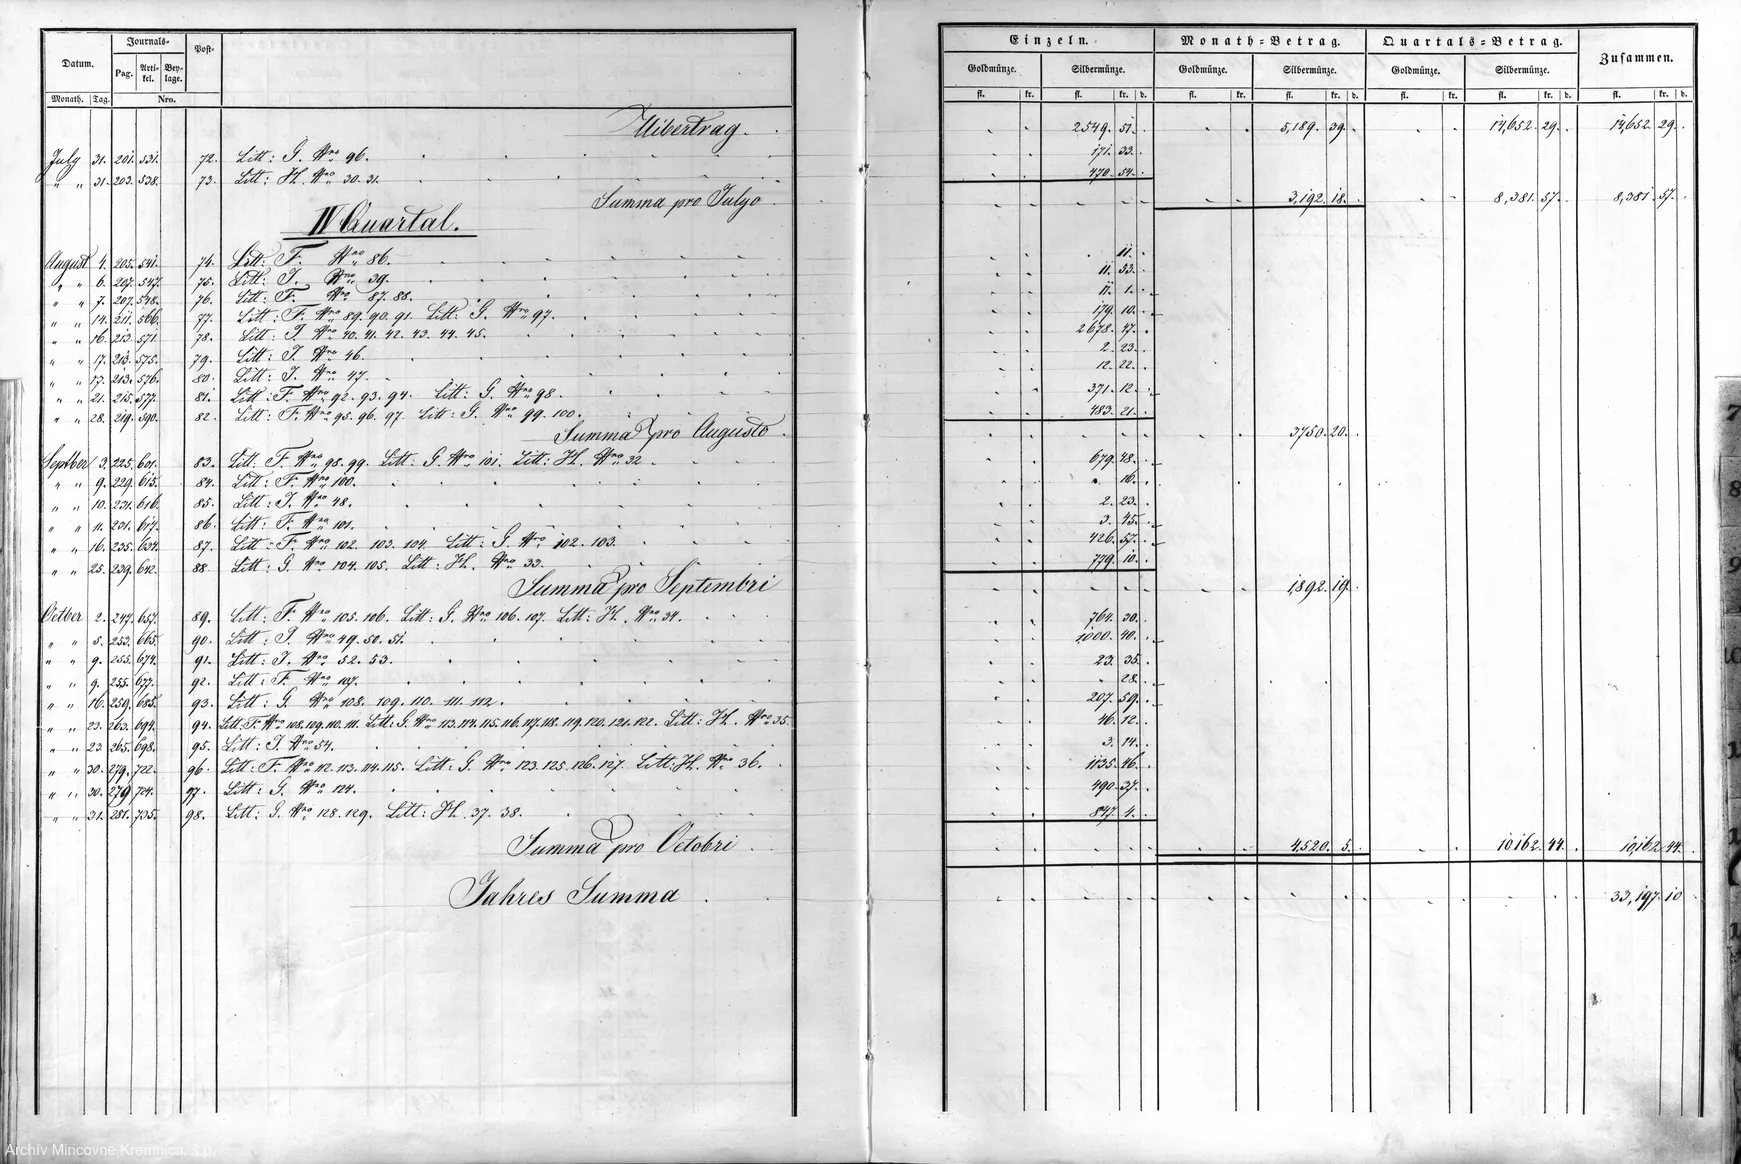 Datum. Journals- Post-
Pag. Arti-kel. Bey-lage.
Monath. Tag. Nro.
Einzeln. Monath-Betrag. Quartals-Betrag. Zusammen.
Goldmünze. Silbermünze. Goldmünze. Silbermünze. Goldmünze. Silbermünze.
fl. kr. fl. kr. d. fl. kr. fl. kr. d. fl. kr. fl. kr. d. fl. kr. d.
Uibertrag. 2549. 51. 5,189. 39. 14,652. 29. 14,652. 29.
July 31. 201. 531. 72. Litt: G. Nro 96. 171. 33.
" " 31. 203. 538. 73. Litt: H. Nro 30. 31. 470. 54.
Summa pro Julyo 3,192. 18. 8,381. 57. 8,381. 57.
IV Quartal.
August 4. 205. 541. 74. Litt: F. Nro 86. 11.
" " 6. 207. 547. 75. Litt: J. Nro 39. 11. 53.
" " 7. 207. 548. 76. Litt: F. Nro 87. 88. 11. 1.
" " 14. 211. 566. 77. Litt: F. Nro 89. 90. 91. Litt: G. Nro 97. 179. 10.
" " 16. 213. 571. 78. Litt: J. Nro 40. 41. 42. 43. 44. 45. 2678. 47.
" " 17. 213. 575. 79. Litt: J. Nro 46. 2. 23.
" " 17. 213. 576. 80. Litt: J. Nro 47. 12. 22.
" " 21. 215. 577. 81. Litt: F. Nro 92. 93. 94. Litt: G. Nro 98. 371. 12.
" " 28. 219. 590. 82. Litt: F. Nro 95. 96. 97. Litt: G. Nro 99. 100. 483. 21.
Summa pro Augusto 3750. 20.
Septber 3. 225. 601. 83. Litt: F. Nro 98. 99. Litt: G. Nro 101. Litt: H. Nro 32. 679. 48.
" " 9. 229. 615. 84. Litt: F. Nro 100. 16.
" " 10. 231. 616. 85. Litt: J. Nro 48. 2. 23.
" " 11. 231. 617. 86. Litt: F. Nro 101. 3. 45.
" " 16. 235. 634. 87. Litt: F. Nro 102. 103. 104. Litt: G. Nro 102. 103. 426. 57.
" " 25. 239. 642. 88. Litt: G. Nro 104. 105. Litt: H. Nro 33. 779. 10.
Summa pro Septembri 1,892. 19.
Octber 2. 247. 657. 89. Litt: F. Nro 105. 106. Litt: G. Nro 106. 107. Litt: H. Nro 34. 764. 30.
" " 5. 253. 665. 90. Litt: J. Nro 49. 50. 51. 1,000. 40.
" " 9. 255. 674. 91. Litt: J. Nro 52. 53. 23. 35.
" " 9. 255. 677. 92. Litt: F. Nro 107. 28.
" " 16. 259. 685. 93. Litt: G. Nro 108. 109. 110. 111. 112. 207. 59.
" " 23. 263. 694. 94. Litt: F. Nro 108. 109. 110. 111. Litt: G. Nro 113. 114. 115. 116. 117. 118. 119. 120. 121. 122. Litt: H. Nro 35. 46. 12.
" " 23 265. 698. 95. Litt: J. Nro 54. 3. 14.
" " 30. 279. 722. 96. Litt: F. Nro 112. 113. 114. 115. Litt: G. Nro 123. 125. 126. 127. Litt: H. Nro 36. 1135. 46.
" " 30. 279 724. 97. Litt: G. Nro 124. 490. 37.
" " 31. 281. 735. 98. Litt: G. Nro 128. 129. Litt: H. 37. 38. 847. 4.
Summa pro Octobri 4,520. 5. 10162. 44. 10,162. 44.
Jahres Summa 33,197. 10
Archív Mincovne Kremnica, š.p.